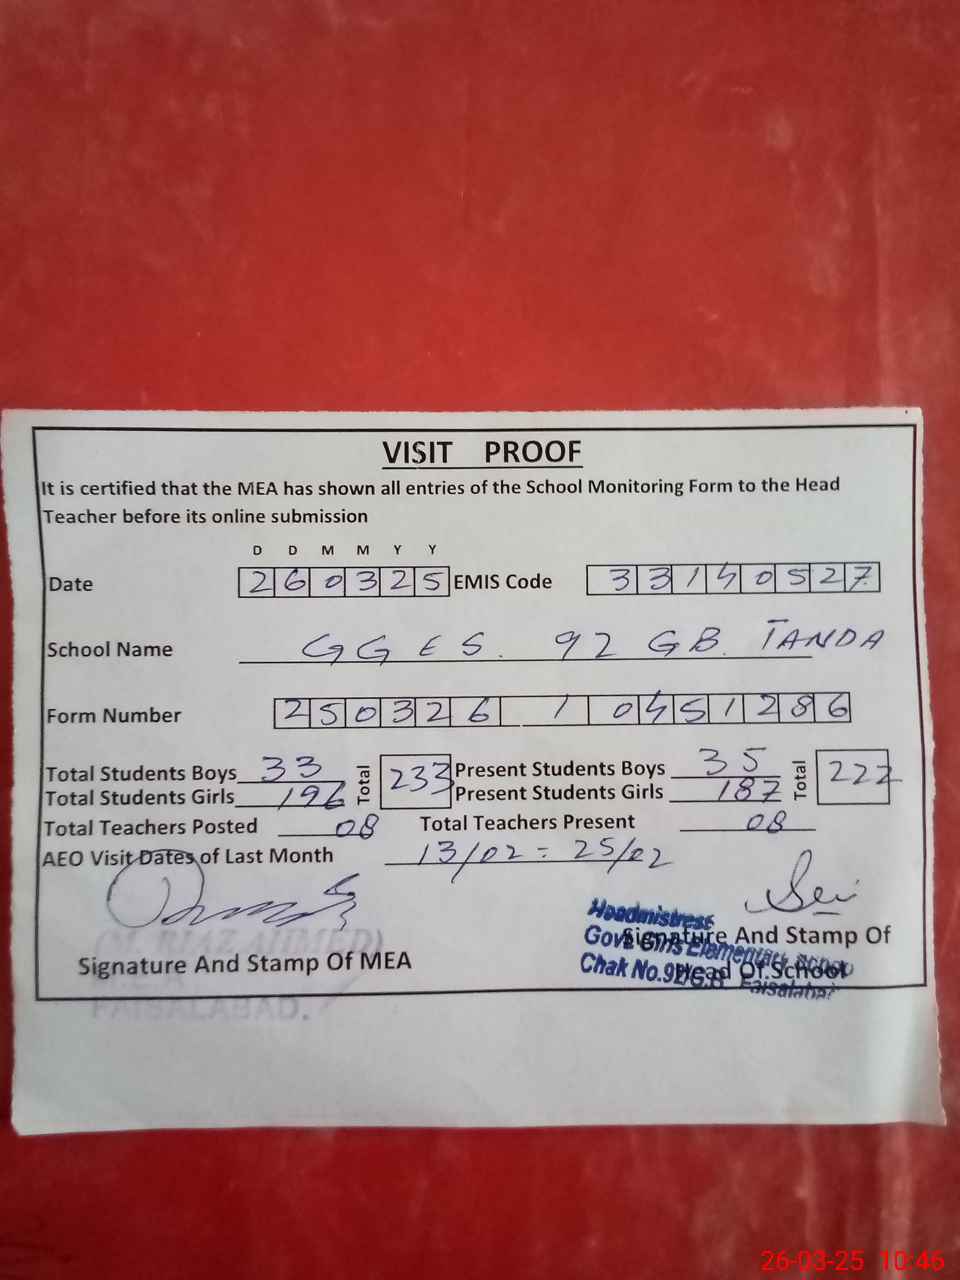 VISIT PROOF
It is certified that the MEA has shown all entries of the School Monitoring Form to the Head
Teacher before its online submission
D D M M Y Y
Date 2 6 0 3 2 5 EMIS Code 3 3 1 4 0 5 2 7
School Name GGES. 92 GB. TANDA
Form Number 2 5 0 3 2 6 1 0 4 5 1 2 8 6
Total Students Boys 33 Total 233 Present Students Boys 35 Total 222
Total Students Girls 196 Present Students Girls 187
Total Teachers Posted 08 Total Teachers Present 08
AEO Visit Dates of Last Month 13/02 = 25/02
Headmistress
Govt Girls Elementary School
Chak No.92/G.B Faisalabad
(M. RIAZ AHMED)
FAISALABAD.
Signature And Stamp Of MEA
Signature And Stamp Of
Head Of School
26-03-25 10:46